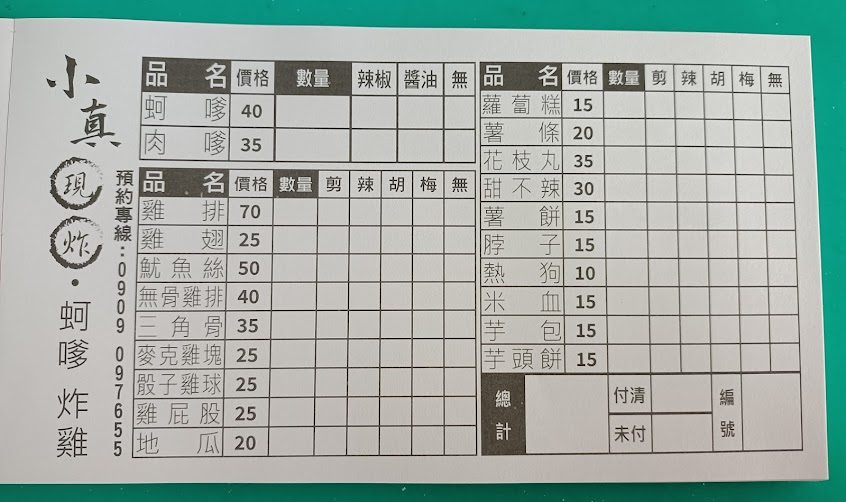 小真
現炸・蚵嗲 炸雞
預約專線:0909 097655
品名 價格 數量 辣椒 醬油 無
蚵嗲 40
肉嗲 35
品名 價格 數量 剪 辣 胡 梅 無
雞排 70
雞翅 25
魷魚絲 50
無骨雞排 40
三角骨 35
麥克雞塊 25
骰子雞球 25
雞屁股 25
地瓜 20
品名 價格 數量 剪 辣 胡 梅 無
蘿蔔糕 15
薯條 20
花枝丸 35
甜不辣 30
薯餅 15
脖子 15
熱狗 10
米血 15
芋包 15
芋頭餅 15
總計 付清 未付 編號